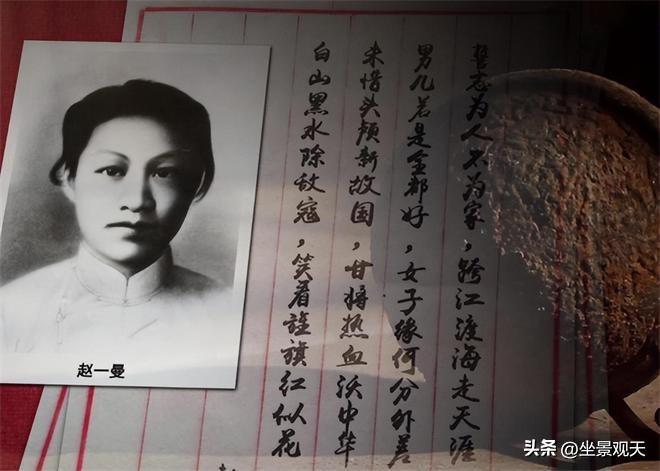 誓志为人不为家，跨江渡海走天涯
男儿若是全都好，女子缘何分外差
未惜头颅新故国，甘将热血沃中华
白山黑水除敌寇，笑看旌旗红似花
赵一曼
头条 @坐景观天